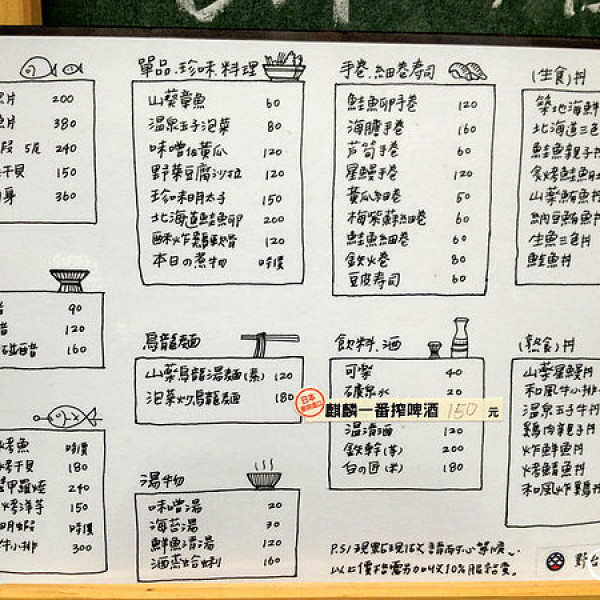 片 200
魚片 380
5尾 240
干貝 150
身 360
90
120
醋 160
烤魚 時價
烤干貝 180
甲羅燒 240
烤洋芋 150
明蝦 時價
牛小排 300
單品.珍味.料理
山葵章魚 60
溫泉玉子泡菜 80
味噌佐黃瓜 120
野菜豆腐沙拉 120
珍味明太子 150
北海道鮭魚卵 200
酥炸雞軟骨 120
本日の煮物 時價
烏龍麵
山藥烏龍湯麵(素) 120
泡菜炒烏龍麵 180
湯物
味噌湯 20
海苔湯 30
鮮魚清湯 120
酒蒸蛤蜊 160
手卷.細卷壽司
鮭魚卵手卷 120
海膽手卷 160
芦筍手卷 60
星鰻手卷 120
黃瓜細卷 50
梅紫蘇細卷 60
鮭魚細卷 60
鉄火卷 80
豆皮寿司 60
飲料.酒
可樂 40
礦泉水 20
日本
麒麟一番搾啤酒 150 元
溫清酒 120
鉄幹(芋) 200
白の匠(米) 180
P.S!現點現做 請耐心等候
以上價格需另收10%服務費.
(生食)丼
築地海鮮
北海道三色
鮭魚親子丼
炙烤鮭魚
山藥鮪魚丼
納豆鮪魚丼
生魚三色丼
鮭魚丼
(熱食)丼
山藥星鰻丼
和風牛小排
溫泉玉子牛丼
雞肉親子丼
炸鮮魚丼
烤鯖魚丼
和風炸雞丼
野台